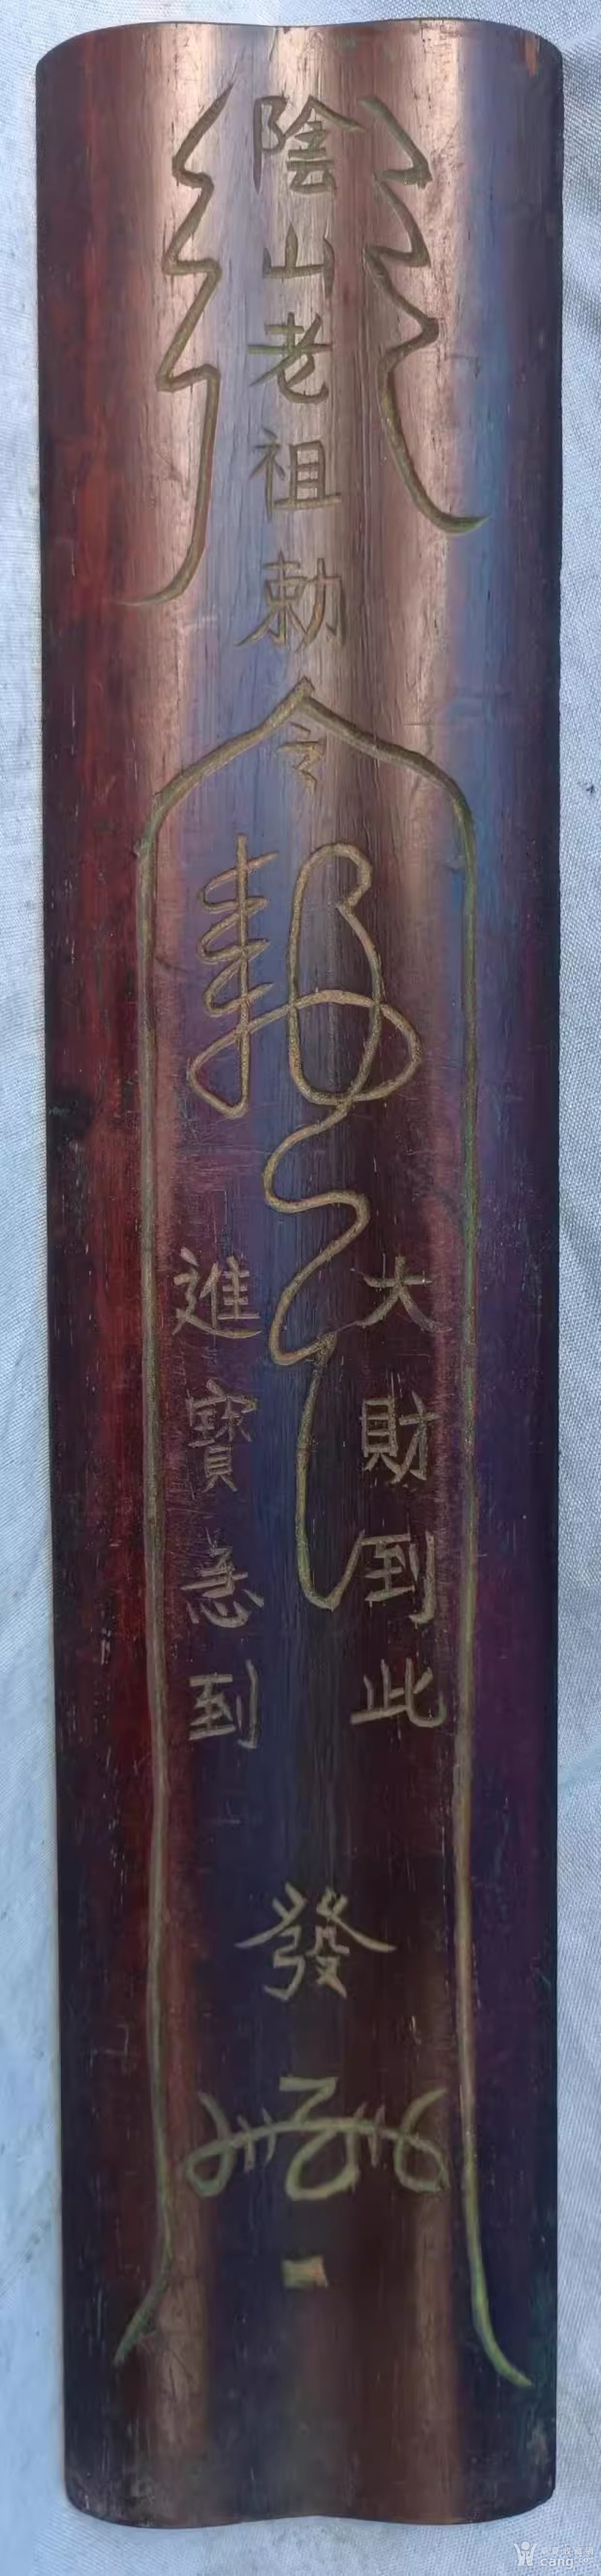 陰山老祖勅令
大財到此
進寶急到
發
cang.com